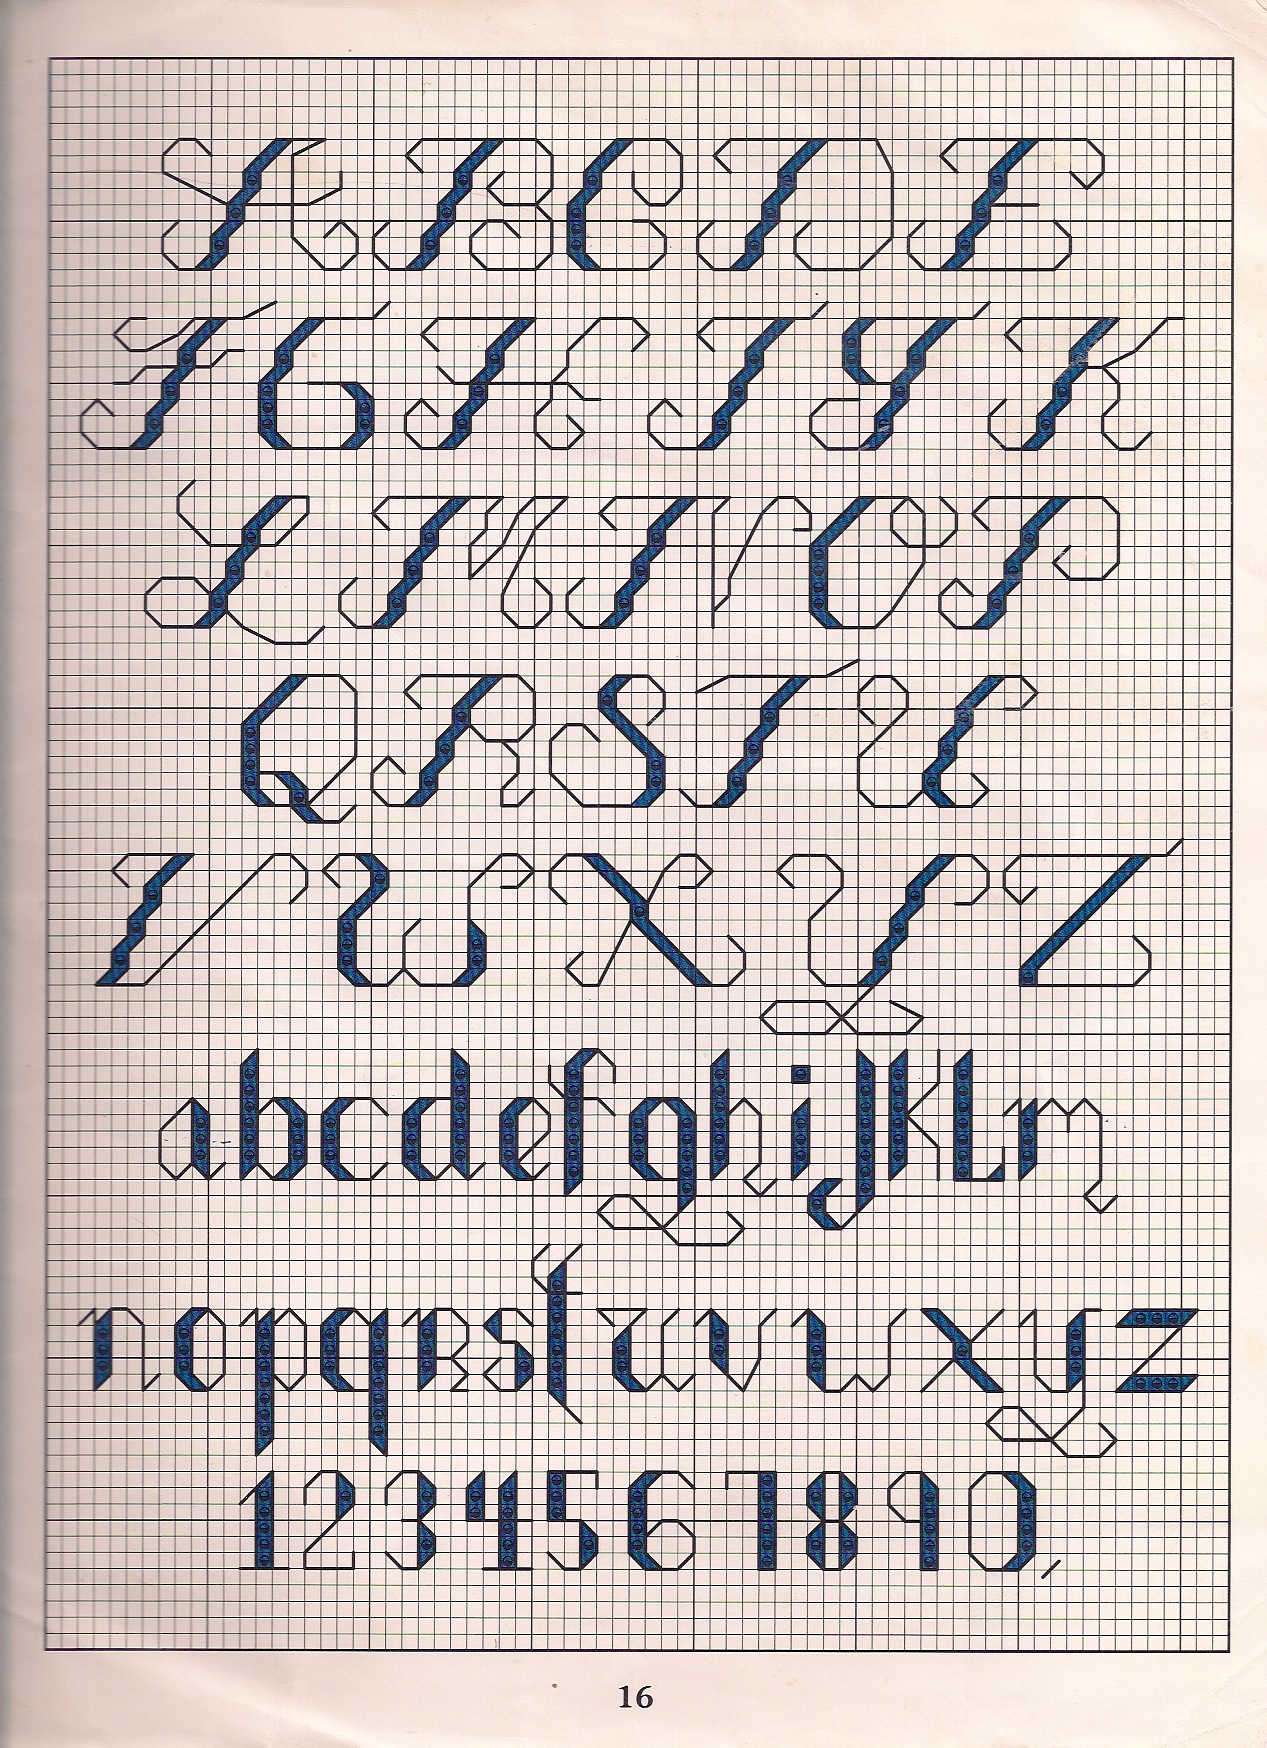 A B C D E
F G H I J K
L M N O P
Q R S T U
V W X Y Z
a b c d e f g h i j k l m
n o p q r s t u v w x y z
1 2 3 4 5 6 7 8 9 0 ,
16